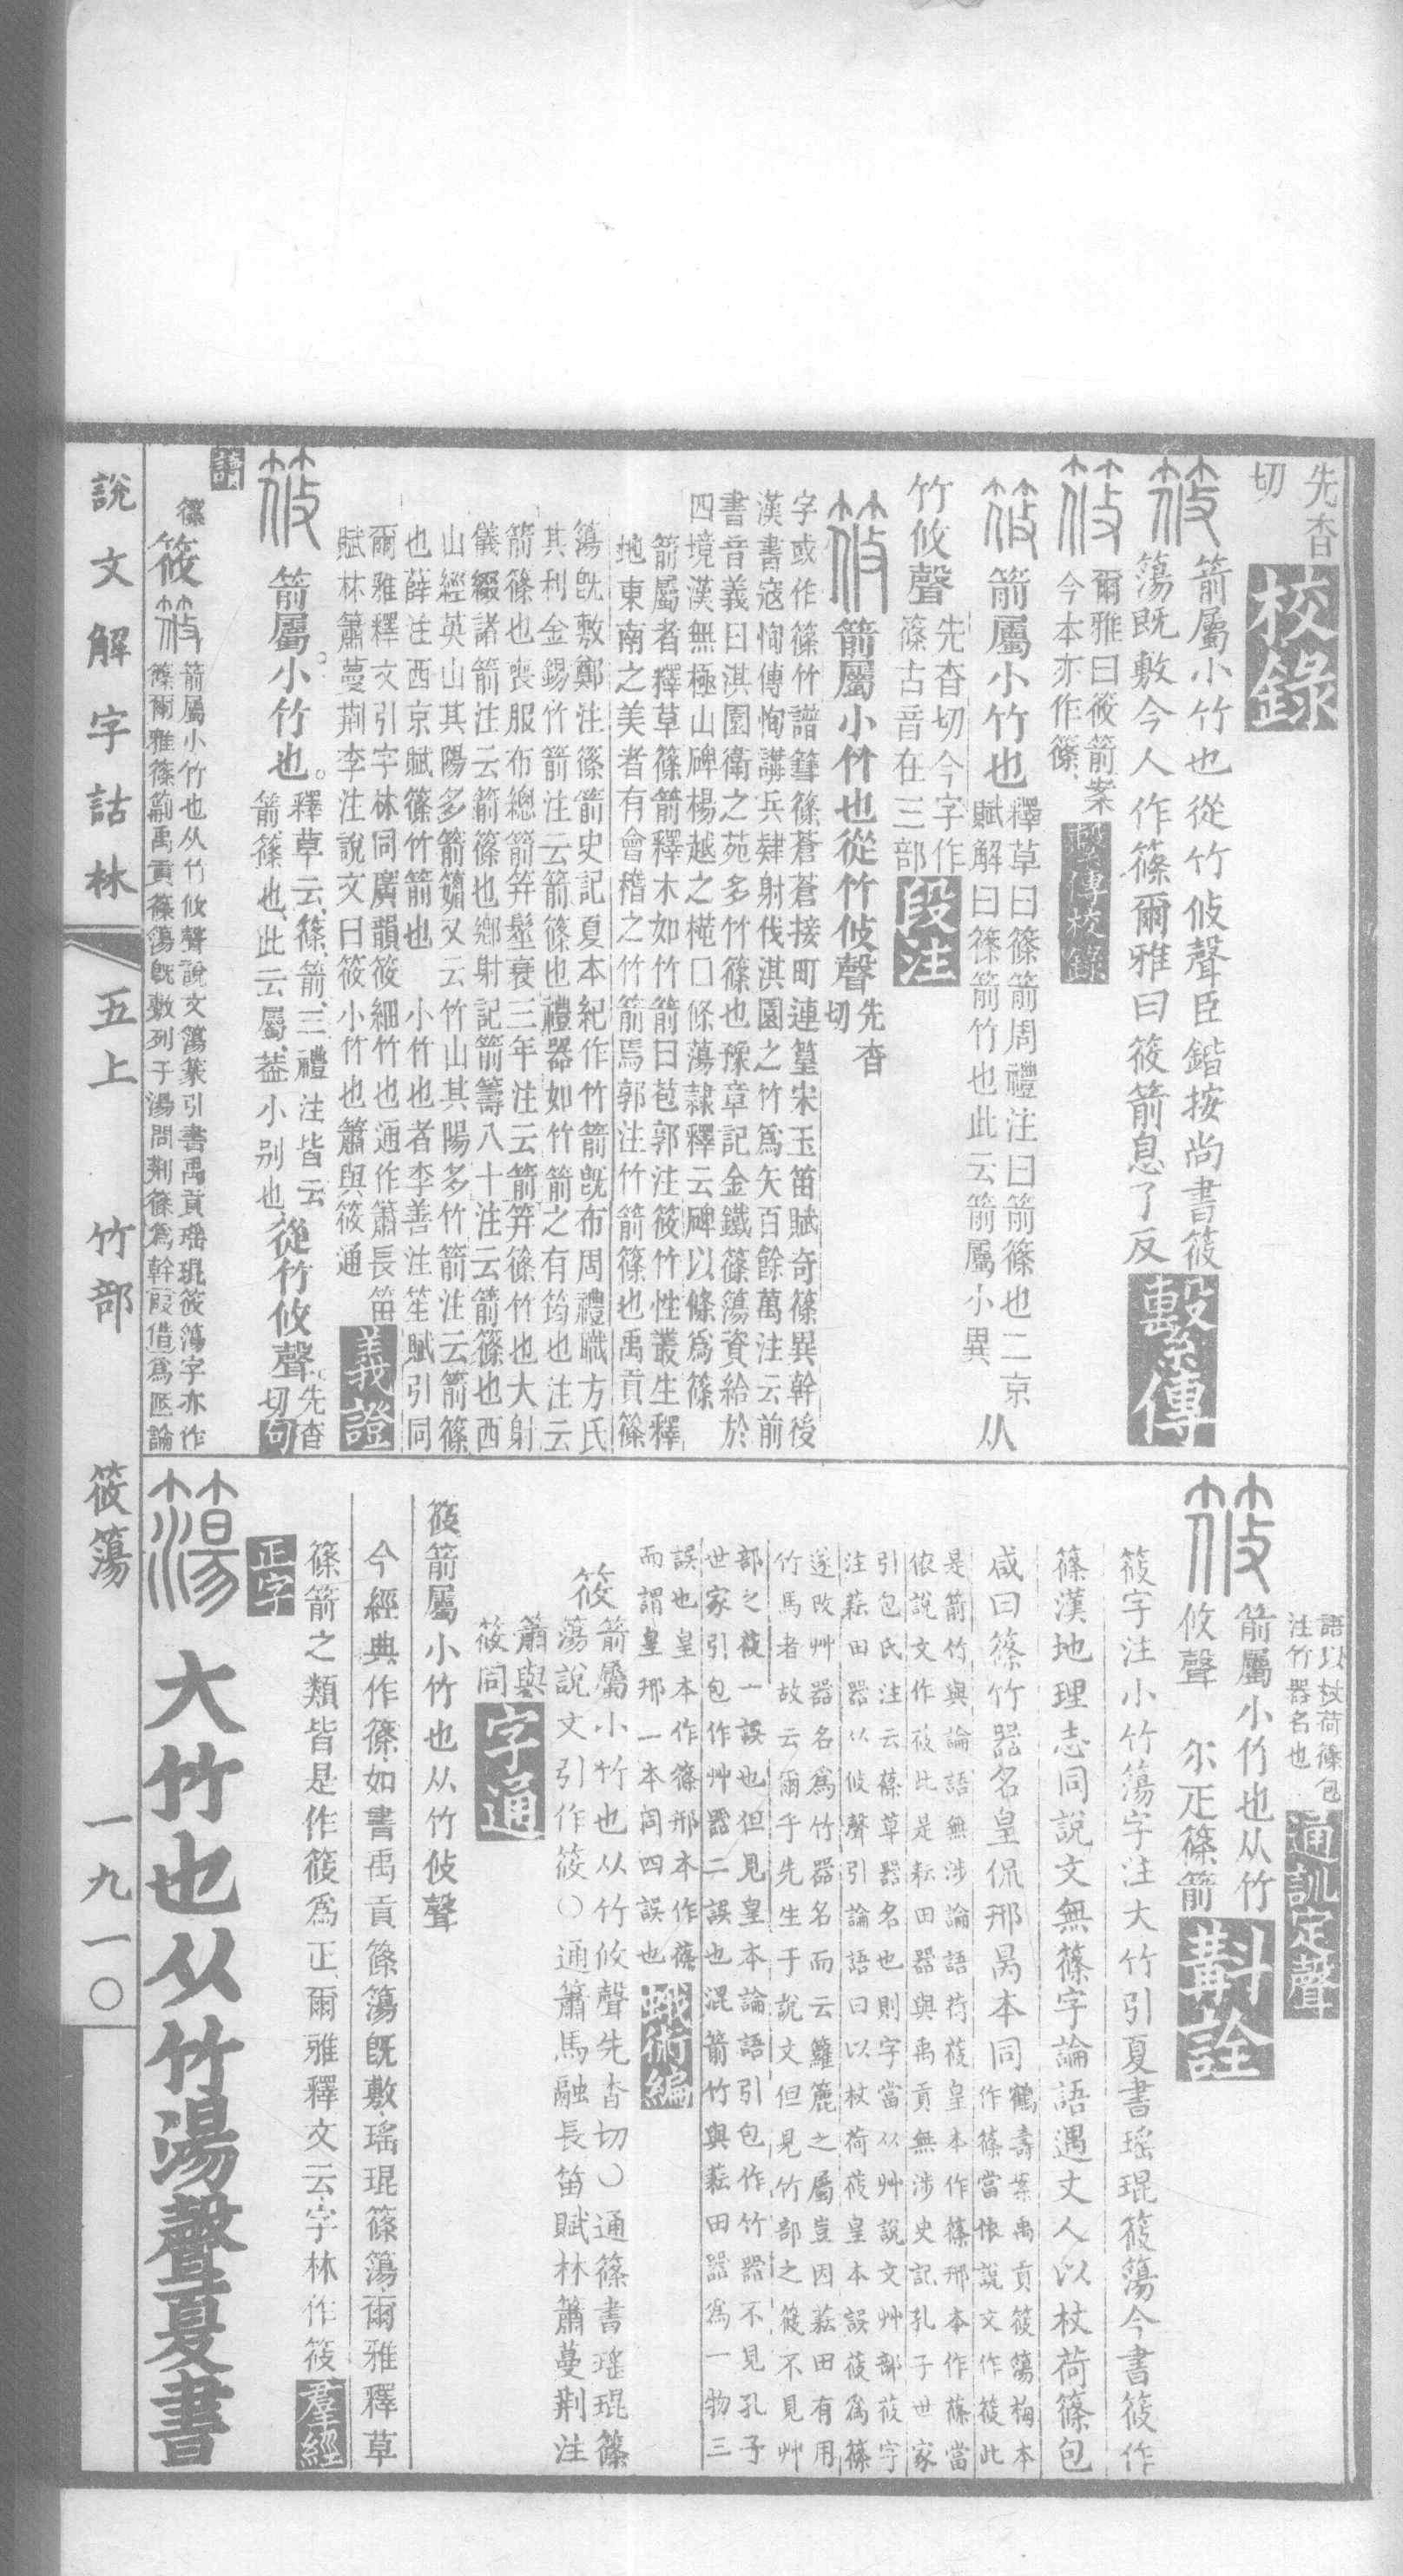 先杳
切
校錄
筱
箭屬小竹也從竹攸聲臣鍇按尚書筱
簜既敷今人作篠爾雅曰筱箭息了反
繫傳
筱
爾雅曰筱箭案
今本亦作篠
繫傳校錄
筱
箭屬小竹也
釋草曰篠箭周禮注曰箭篠也二京
賦解曰篠箭竹也此云箭屬小異
从
竹攸聲
先杳切今字作
篠古音在三部
段注
筱
箭屬小竹也從竹攸聲
先杳
切
字或作篠竹譜篲篠蒼蒼接町連篁宋玉笛賦奇篠異幹後
漢書寇恂傳恂講兵肄射伐淇園之竹爲矢百餘萬注云前
書音義曰淇園衛之苑多竹篠也豫章記金鐵篠簜資給於
四境漢無極山碑楊越之㯍口條蕩隸釋云碑以條爲篠
箭屬者釋草篠箭釋木如竹箭曰苞郭注筱竹性叢生釋
地東南之美者有會稽之竹箭焉郭注竹箭篠也禹貢篠
簜既敷鄭注篠箭史記夏本紀作竹箭既布周禮職方氏
其利金錫竹箭注云箭篠也禮器如竹箭之有筠也注云
箭篠也喪服布總箭笄髽衰三年注云箭笄篠竹也大射
儀綴諸箭注云箭篠也鄉射記箭籌八十注云箭篠也西
山經英山其陽多箭䉋又云竹山其陽多竹箭注云箭篠
也薛注西京賦篠竹箭也 小竹也者李善注笙賦引同
爾雅釋文引字林同廣韻筱細竹也通作簫長笛
賦林簫蔓荆李注說文曰筱小竹也簫與筱通
義證
筱
箭屬小竹也
釋草云篠箭三禮注皆云
箭篠也此云屬葢小别也
從竹攸聲
先杳
切
句
讀
篠
筱
箭屬小竹也从竹攸聲說文簜篆引書禹貢瑤琨筱簜字亦作
篠爾雅篠箭禹貢篠簜既敷列子湯問荆篠爲幹叚借爲匧論
語以杖荷篠包
注竹器名也
通訓定聲
筱
箭屬小竹也从竹
攸聲 尔疋篠箭
斠詮
筱字注小竹簜字注大竹引夏書瑤琨筱簜今書筱作
篠漢地理志同說文無篠字論語遇丈人以杖荷篠包
咸曰篠竹器名皇侃邢昺本同
鶴壽案禹貢筱簜梅本
作篠當依說文作筱此
是箭竹與論語無涉論語荷莜皇本作篠邢本作蓧當
依說文作莜此是耘田器與禹貢無涉史記孔子世家
引包氏注云蓧草器名也則字當从艸說文艸部莜字
注莜田器以攸聲引論語曰以杖荷莜皇本誤莜爲篠
遂改艸器名爲竹器名而云籮簏之屬豈因耘田有用
竹馬者故云爾乎先生于說文但見竹部之筱不見艸
部之莜一誤也但見皇本論語引包作竹器不見孔子
世家引包作艸器二誤也混箭竹與耘田器爲一物三
誤也皇本作篠邢本作蓧
而謂皇邢一本同四誤也
蛾術編
筱
箭屬小竹也从竹攸聲先杳切○通篠書瑤琨篠
簜說文引作筱○通簫馬融長笛賦林簫蔓荆注
簫與
筱同
字通
筱箭屬小竹也从竹攸聲
今經典作篠如書禹貢篠簜既敷瑤琨篠簜爾雅釋草
篠箭之類皆是作筱爲正爾雅釋文云字林作筱
羣經
正字
簜
大竹也从竹湯聲夏書
說文解字詁林
五上
竹部
筱簜
一九一〇